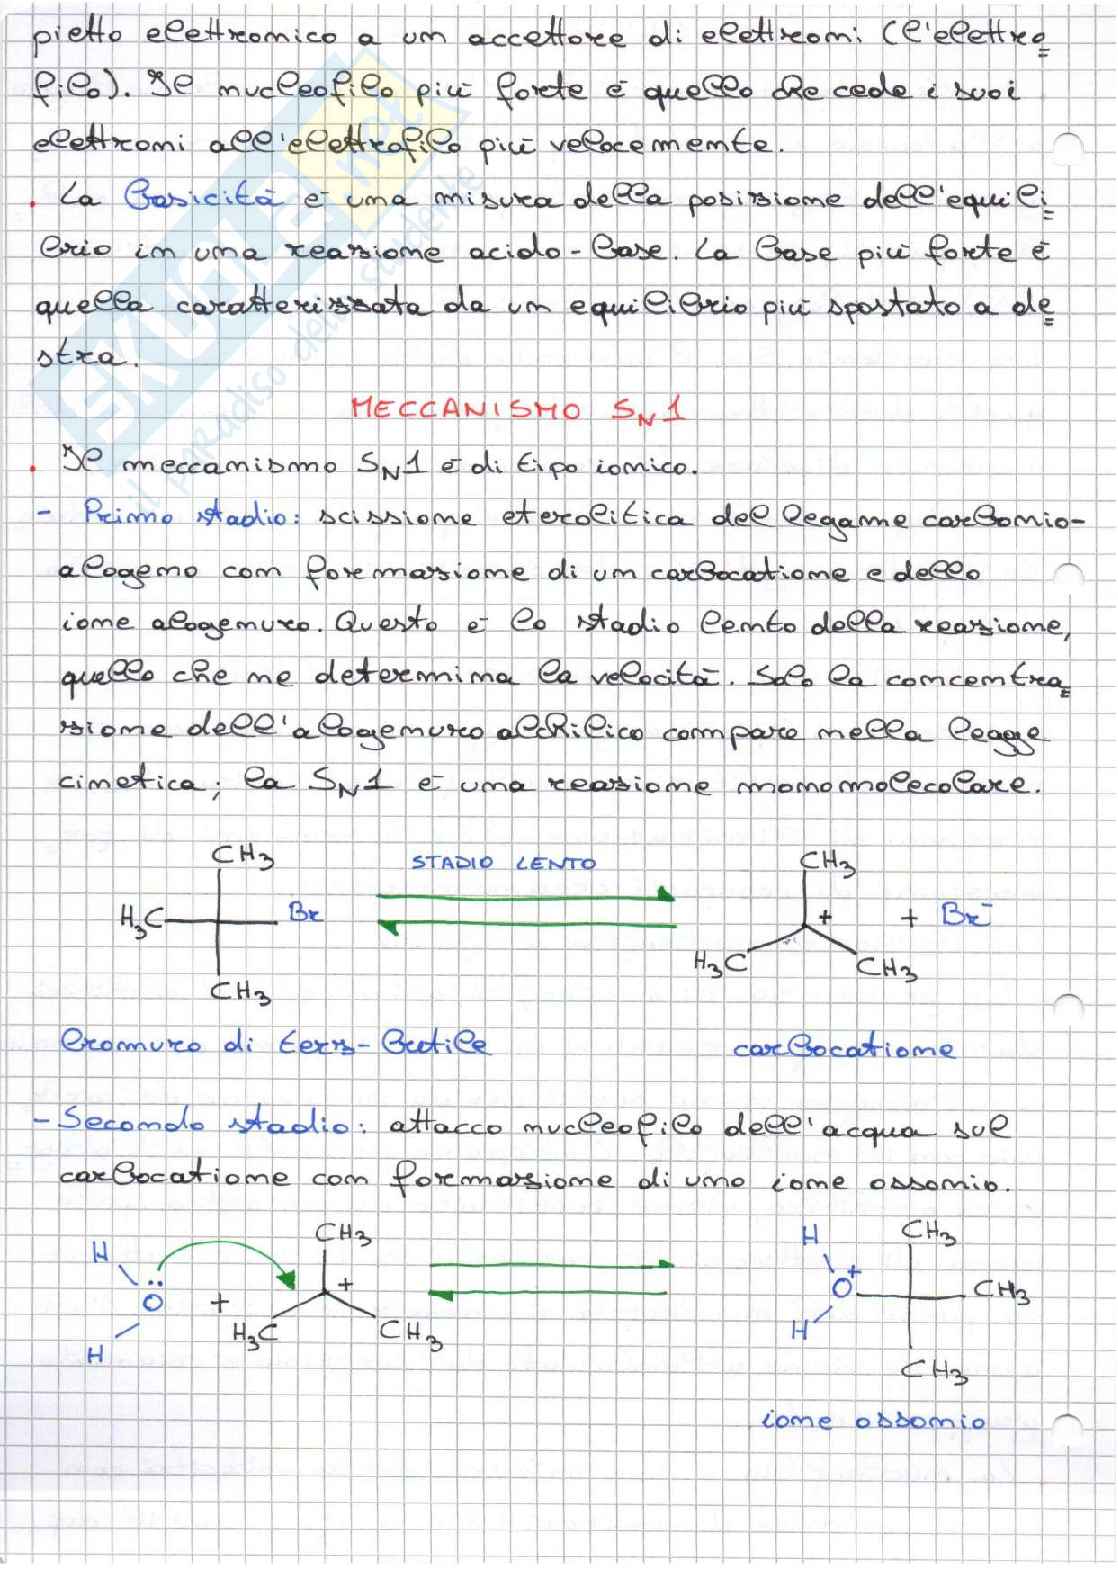 pietto elettronico a un accettore di elettroni (l'elettro=
filo). Il nucleofilo più forte è quello che cede i suoi
elettroni all'elettrofilo più velocemente.
. La basicità è una misura della posizione dell'equili=
brio in una reazione acido-base. La base più forte è
quella caratterizzata da un equilibrio più spostato a de=
stra.
MECCANISMO SN1
. Il meccanismo SN1 è di tipo ionico.
- Primo stadio: scissione eterolitica del legame carbonio-
alogeno con formazione di un carbocatione e dello
ione alogenuro. Questo è lo stadio lento della reazione,
quello che ne determina la velocità. Solo la concentra=
zione dell'alogenuro alchilico compare nella legge
cinetica; la SN1 è una reazione monomolecolare.
CH3 STADIO LENTO CH3
H3C Br + + Br-
H3C CH3
CH3
bromuro di terz-butile carbocatione
- Secondo stadio: attacco nucleofilo dell'acqua sul
carbocatione con formazione di uno ione ossonio.
H CH3 H CH3
O + H3C + CH3 O+ CH3
H H
CH3
ione ossonio
SKUOLA.net
il paradiso dello studente